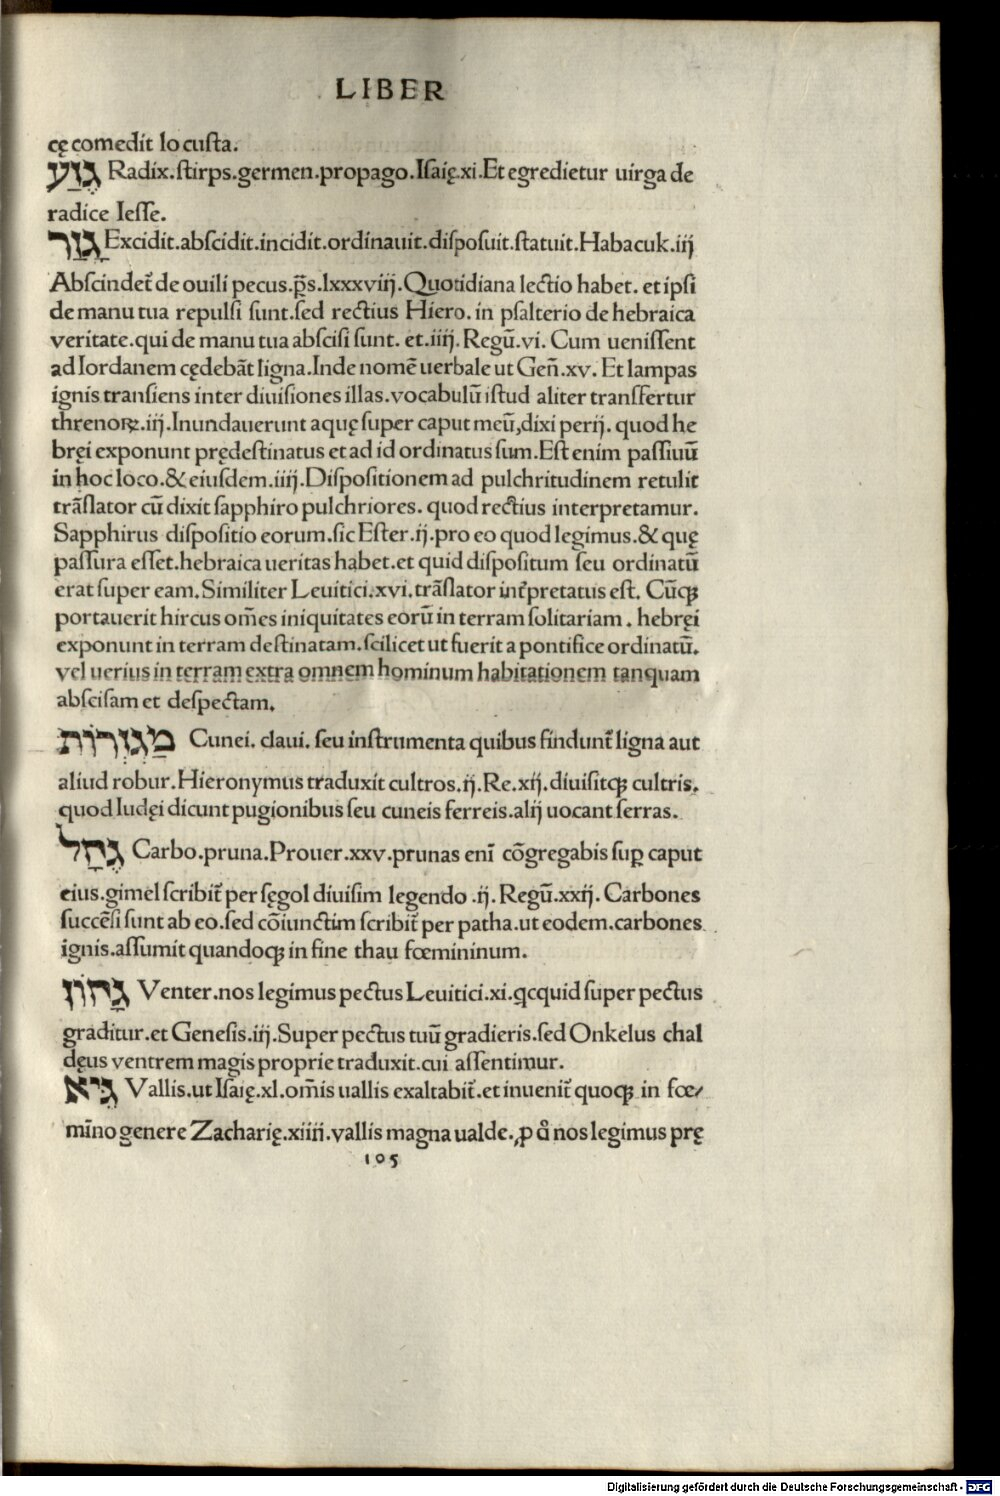 LIBER
cę comedit locusta.
גֶּזַע Radix.stirps.germen.propago.Isaię.xi.Et egredietur uirga de
radice Iesse.
גָּזַר Excidit.abscidit.incidit.ordinauit.disposuit.statuit.Habacuk.iij
Abscindet̃ de ouili pecus.p̃s.lxxxvij.Quotidiana lectio habet. et ipsi
de manu tua repulsi sunt.sed rectius Hiero. in psalterio de hebraica
veritate.qui de manu tua abscisi sunt. et.iiij. Regũ.vi. Cum uenissent
ad Iordanem cędebãt ligna.Inde nomẽ uerbale ut Geñ.xv. Et lampas
ignis transiens inter diuisiones illas.vocabulũ istud aliter transfertur
threnoꝝ.iij.Inundauerunt aquę super caput meũ,dixi perij. quod he
bręi exponunt prędestinatus et ad id ordinatus sum.Est enim passiuũ
in hoc loco.& eiusdem.iiij.Dispositionem ad pulchritudinem retulit
trãslator cũ dixit sapphiro pulchriores. quod rectius interpretamur.
Sapphirus dispositio eorum.sic Ester.ij.pro eo quod legimus.& quę
passura esset.hebraica ueritas habet.et quid dispositum seu ordinatũ
erat super eam.Similiter Leuitici.xvi.trãslator int̃pretatus est. Cũqꝫ
portauerit hircus om̃es iniquitates eorũ in terram solitariam. hebręi
exponunt in terram destinatam.scilicet ut fuerit a pontifice ordinatũ.
vel uerius in terram extra omnem hominum habitationem tanquam
abscisam et despectam.
מַגְזְרוֹת Cunei. claui. seu instrumenta quibus findunt̃ ligna aut
aliud robur.Hieronymus traduxit cultros.ij.Re.xij.diuisitqꝫ cultris.
quod Iudęi dicunt pugionibus seu cuneis ferreis.alij uocant serras.
גֶּחָל Carbo.pruna.Prouer.xxv.prunas enĩ cõgregabis suꝑ caput
eius.gimel scribit̃ per sęgol diuisim legendo .ij. Regũ.xxij. Carbones
succẽsi sunt ab eo.sed cõiunctim scribit̃ per patha.ut eodem.carbones
ignis.assumit quandoqꝫ in fine thau fœmininum.
גָּחוֹן Venter.nos legimus pectus Leuitici.xi.qcquid super pectus
graditur.et Genesis.iij.Super pectus tuũ gradieris.sed Onkelus chal
dęus ventrem magis proprie traduxit.cui assentimur.
גֶּיא Vallis.ut Isaię.xl.om̃is uallis exaltabit̃.et inuenit̃ quoqꝫ in fœ⸗
mĩno genere Zacharię.xiiij.vallis magna ualde.ꝓ q̃ nos legimus prę
105
Digitalisierung gefördert durch die Deutsche Forschungsgemeinschaft - DFG